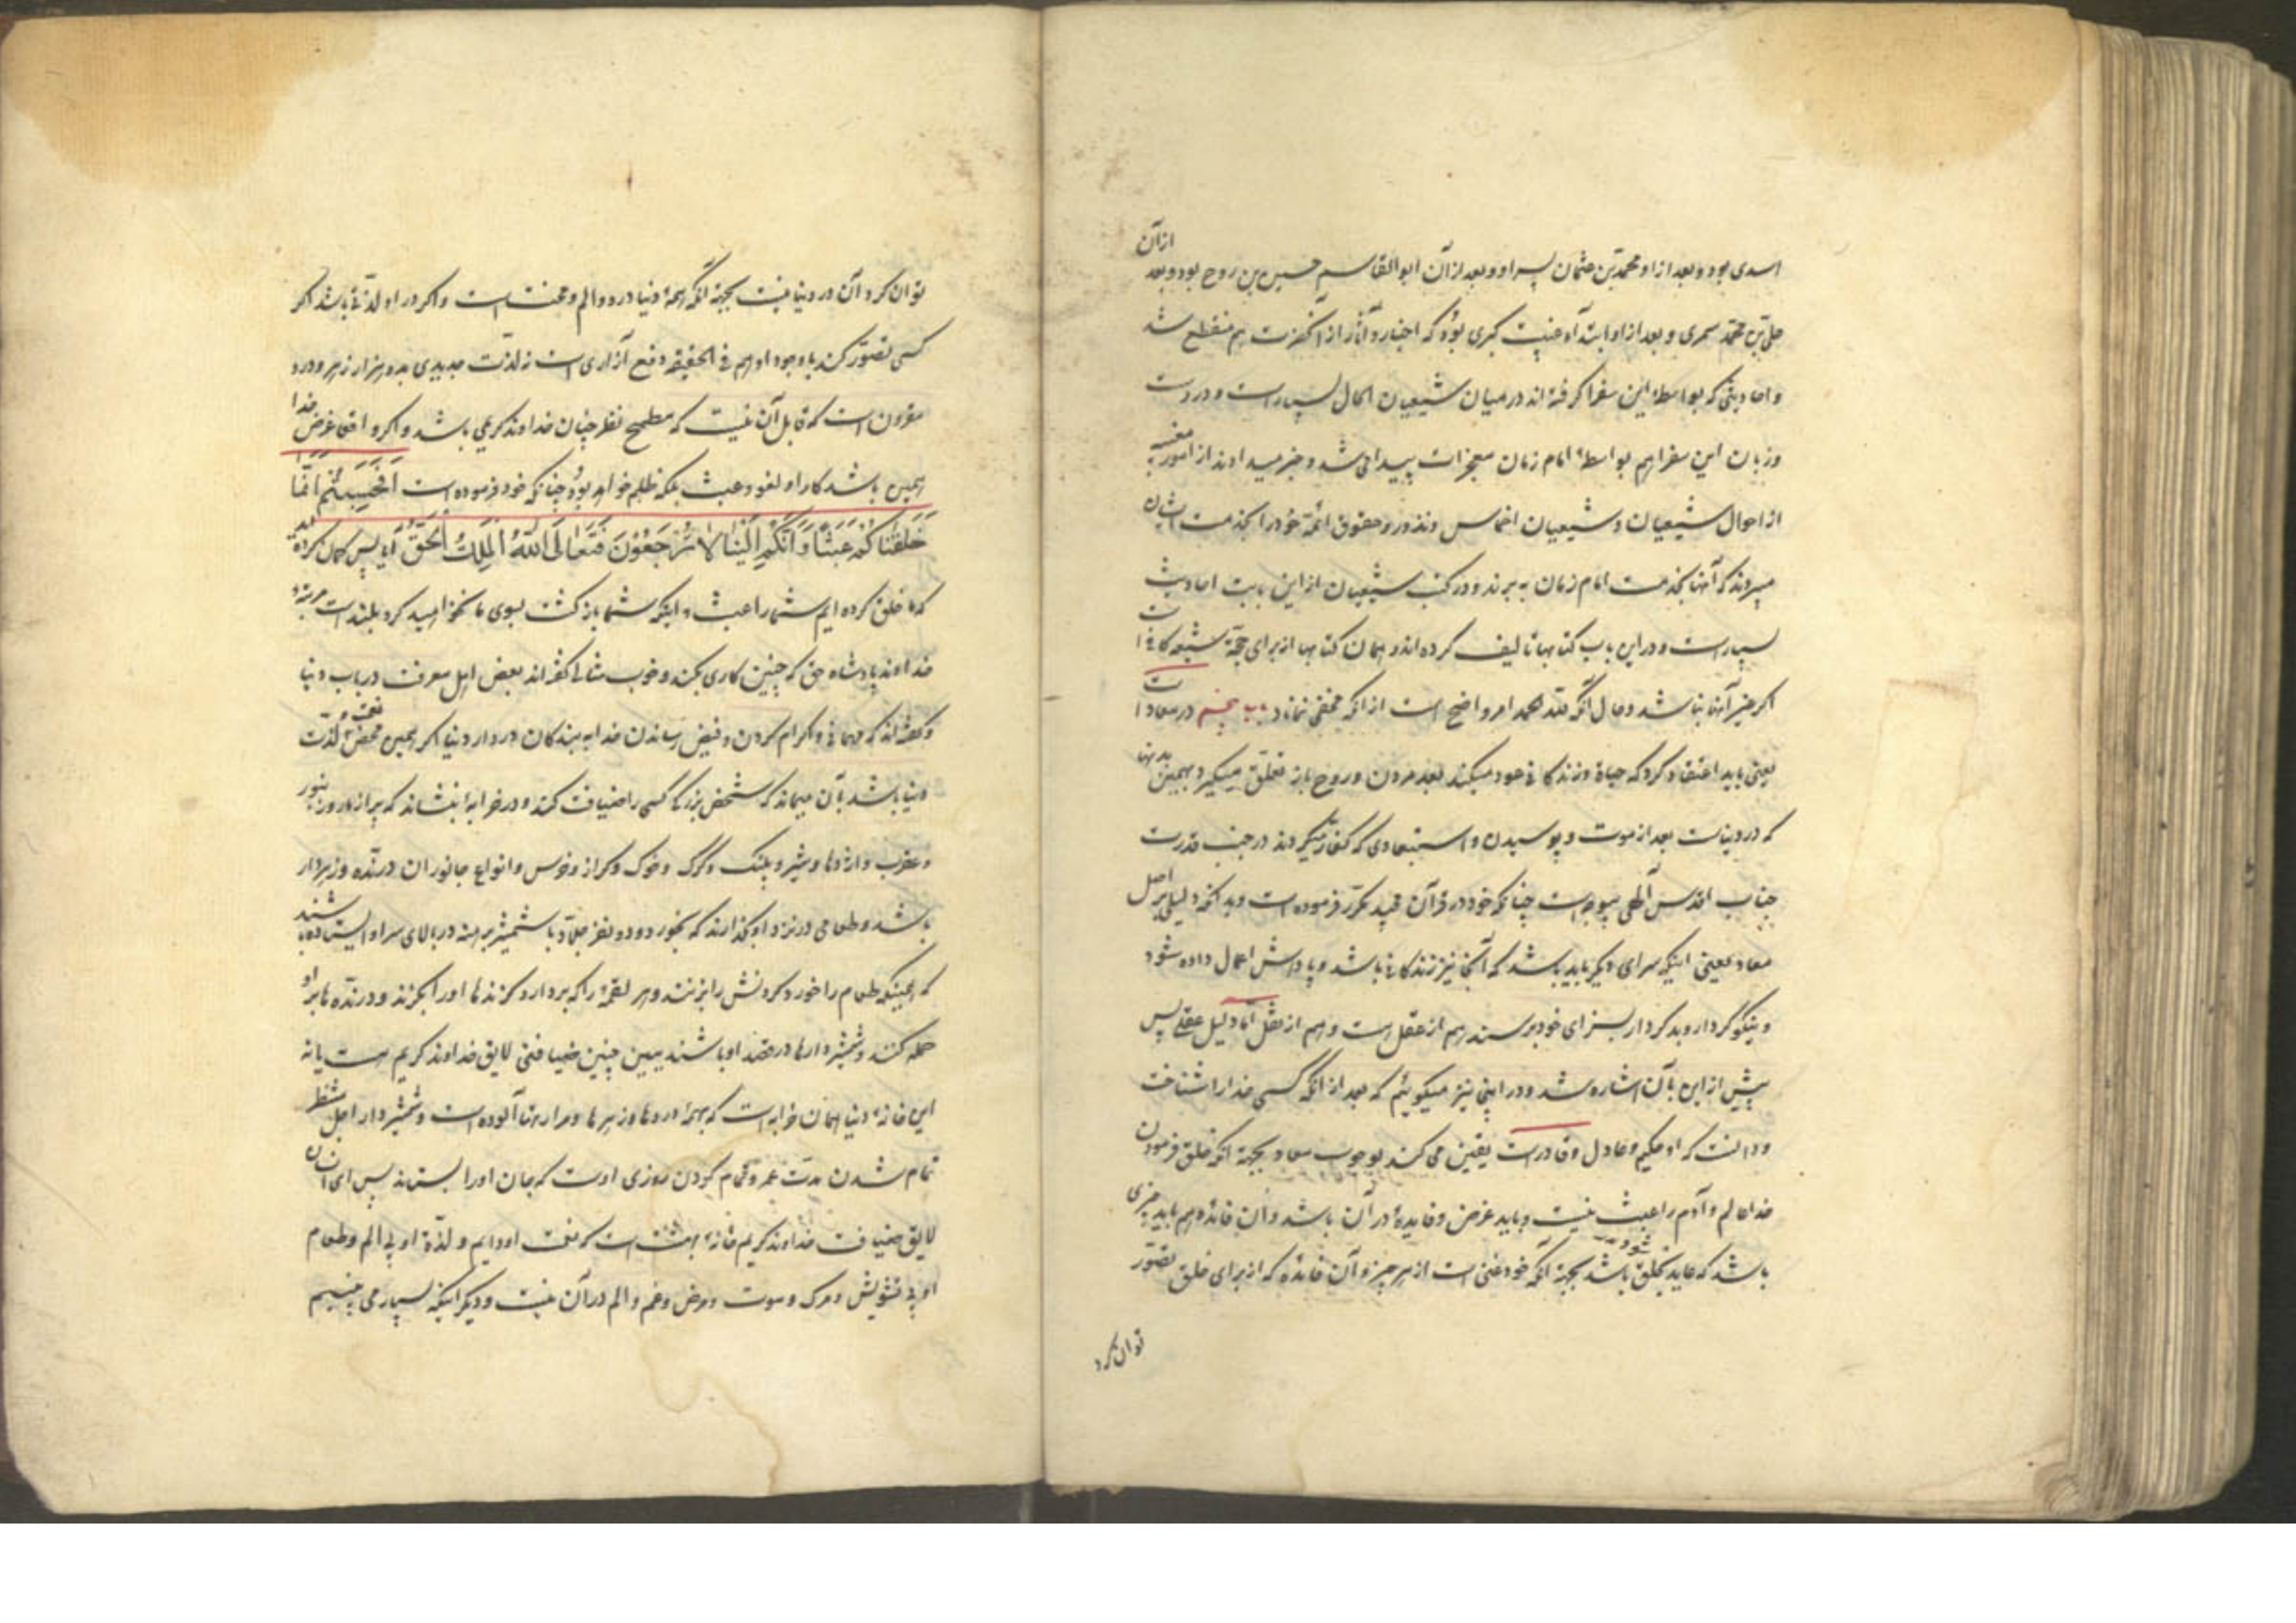 اسدی بود و بعد از او محمد بن عثمان پسر او و بعد از آن ابوالقاسم حسین بن روح بود و بعد از آن
علی بن محمد سمری و بعد از او ابتدآء غیبت کبری بود که اخبار و آثار از آنحضرت هم منقطع شد
و احادیثی که بواسطهٔ این سفرا گرفته‌اند در میان شیعیان الحال بسیار است و در دست
و زبان این سفرا هم بواسطهٔ امام زمان معجزات پیدا می‌شد و خبر میدادند از امور مغیبه
از احوال شیعیان و شیعیان اخماس و نذور و حقوق ائمهٔ خود را بخدمت ایشان
میبردند که آنها بخدمت امام زمان به برند و در کتب شیعیان از این بابت احادیث
بسیار است و در این باب کتابها تالیف کرده‌اند و همان کتابها از برای حجة شیعه کافی است
اگر خبر آنها نباشد و حال آنکه لله الحمد امر واضح است از آنکه مخفی نماند باب پنجم در معاد است
یعنی باید اعتقاد کرد که حیاة و زندگانی عود میکند بعد مردن و روح باز تعلق میگیرد بهمین بدنها
که در دنیاست بعد از موت و پوسیدن و استبعادی که کفار میکردند در جنب قدرت
جناب اقدس آلهی بیوجه است چنانکه خود در قرآن مجید مکرّر فرموده است و بدانکه دلیل بر اصل
معاد یعنی اینکه سرای دیگر باید باشد که آنجا نیز زندگانی باشد و پاداش اعمال داده شود
و نیکوکردار و بدکردار بسزای خود برسند هم از عقل هست و هم از نقل امّا دلیل عقلی پس
پیش از این بآن اشاره شد و در اینجا نیز میگوئیم که بعد از آنکه کسی خدا را شناخت
و دانست که او حکیم و عادل و قادر است یقین می کند بوجوب معاد بجهة آنکه خلق فرمودن
خدا عالم و آدم را عبث نیست و باید غرض و فایدهٔ در آن باشد و آن فائده هم باید چیزی
باشد که عاید بخلق شود باشد بجهة آنکه خود غنی است از هر چیز و آن فائده که از برای خلق تصوّر
توان کرد
توان کرد آن در دنیا نیست بجهة آنکه همهٔ دنیا درد و الم و محنت است و اگر در او لذّتی باشد اگر
کسی تصوّر کند باوجود او هم فی الحقیقه دفع آزاری است نه لذّت جدیدی بده هزار زهر و درد
مقرون است که قابل آن نیست که مطمح نظر چنان خداوند کریمی باشد و اگر واقعا غرض خدا
همین باشد کار او لغو و عبث بلکه ظلم خواهد بود چنانکه خود فرموده است اَفَحَسِبْتُمْ اَنَّمَا
خَلَقْنَاکُمْ عَبَثًا وَ اَنَّکُمْ اِلَیْنَا لا تُرْجَعُوْنَ فَتَعَالَی اللّٰهُ الْمَلِکُ الْحَقُّ آیا پس گمان کرده اید
که ما خلق کرده ایم شما را عبث و اینکه شما بازگشت بسوی ما نخواهید کرد بلند است مرتبهٔ
خداوند پادشاه حق که چنین کاری بکند و خوب مثالی گفته‌اند بعض اهل معرفت در باب دنیا
و گفته‌اند که مهمانی و اکرام کردن و فیض رساندن خدا به بندگان در دار دنیا اگر همین محض نعمت و لذّت
دنیا باشد بآن میماند که شخص بزرگی کسی را ضیافت کند و در خرابهٔ بنشاند که پر از مار و زنبور
و عقرب و اژدها و شیر و پلنگ و گرگ و خوک و گراز و خرس و انواع جانوران درنده و زهردار
باشد و طعامی در نزد او گذارند که بخورد و ده نفر جلّاد با شمشیر برهنه در بالای سر او ایستاده باشند
که همینکه طعام را خورد گردنش را بزنند و هر لقمهٔ را که بردارد گزنده‌ها او را بگزند و درنده ها بر او
حمله کنند و شمشیردارها در قصد او باشند ببین چنین ضیافتی لایق خداوند کریم هست یا نه
این خانهٔ دنیا همان خرابه است که بهمهٔ دردها و زهرها و مرارتها آلوده است و شمشیردار اجل منتظر
تمام شدن مدّت عمر و تمام کردن روزی اوست که جان او را بستاند پس ای انسان
لایق ضیافت خداوند کریم خانهٔ بهشت است که نعمت او دایم و لذّة او بی الم و طعام
او بی تشویش و مرگ و موت و مرض و غم و الم در آن نیست و دیگر اینکه بسیار می بینیم